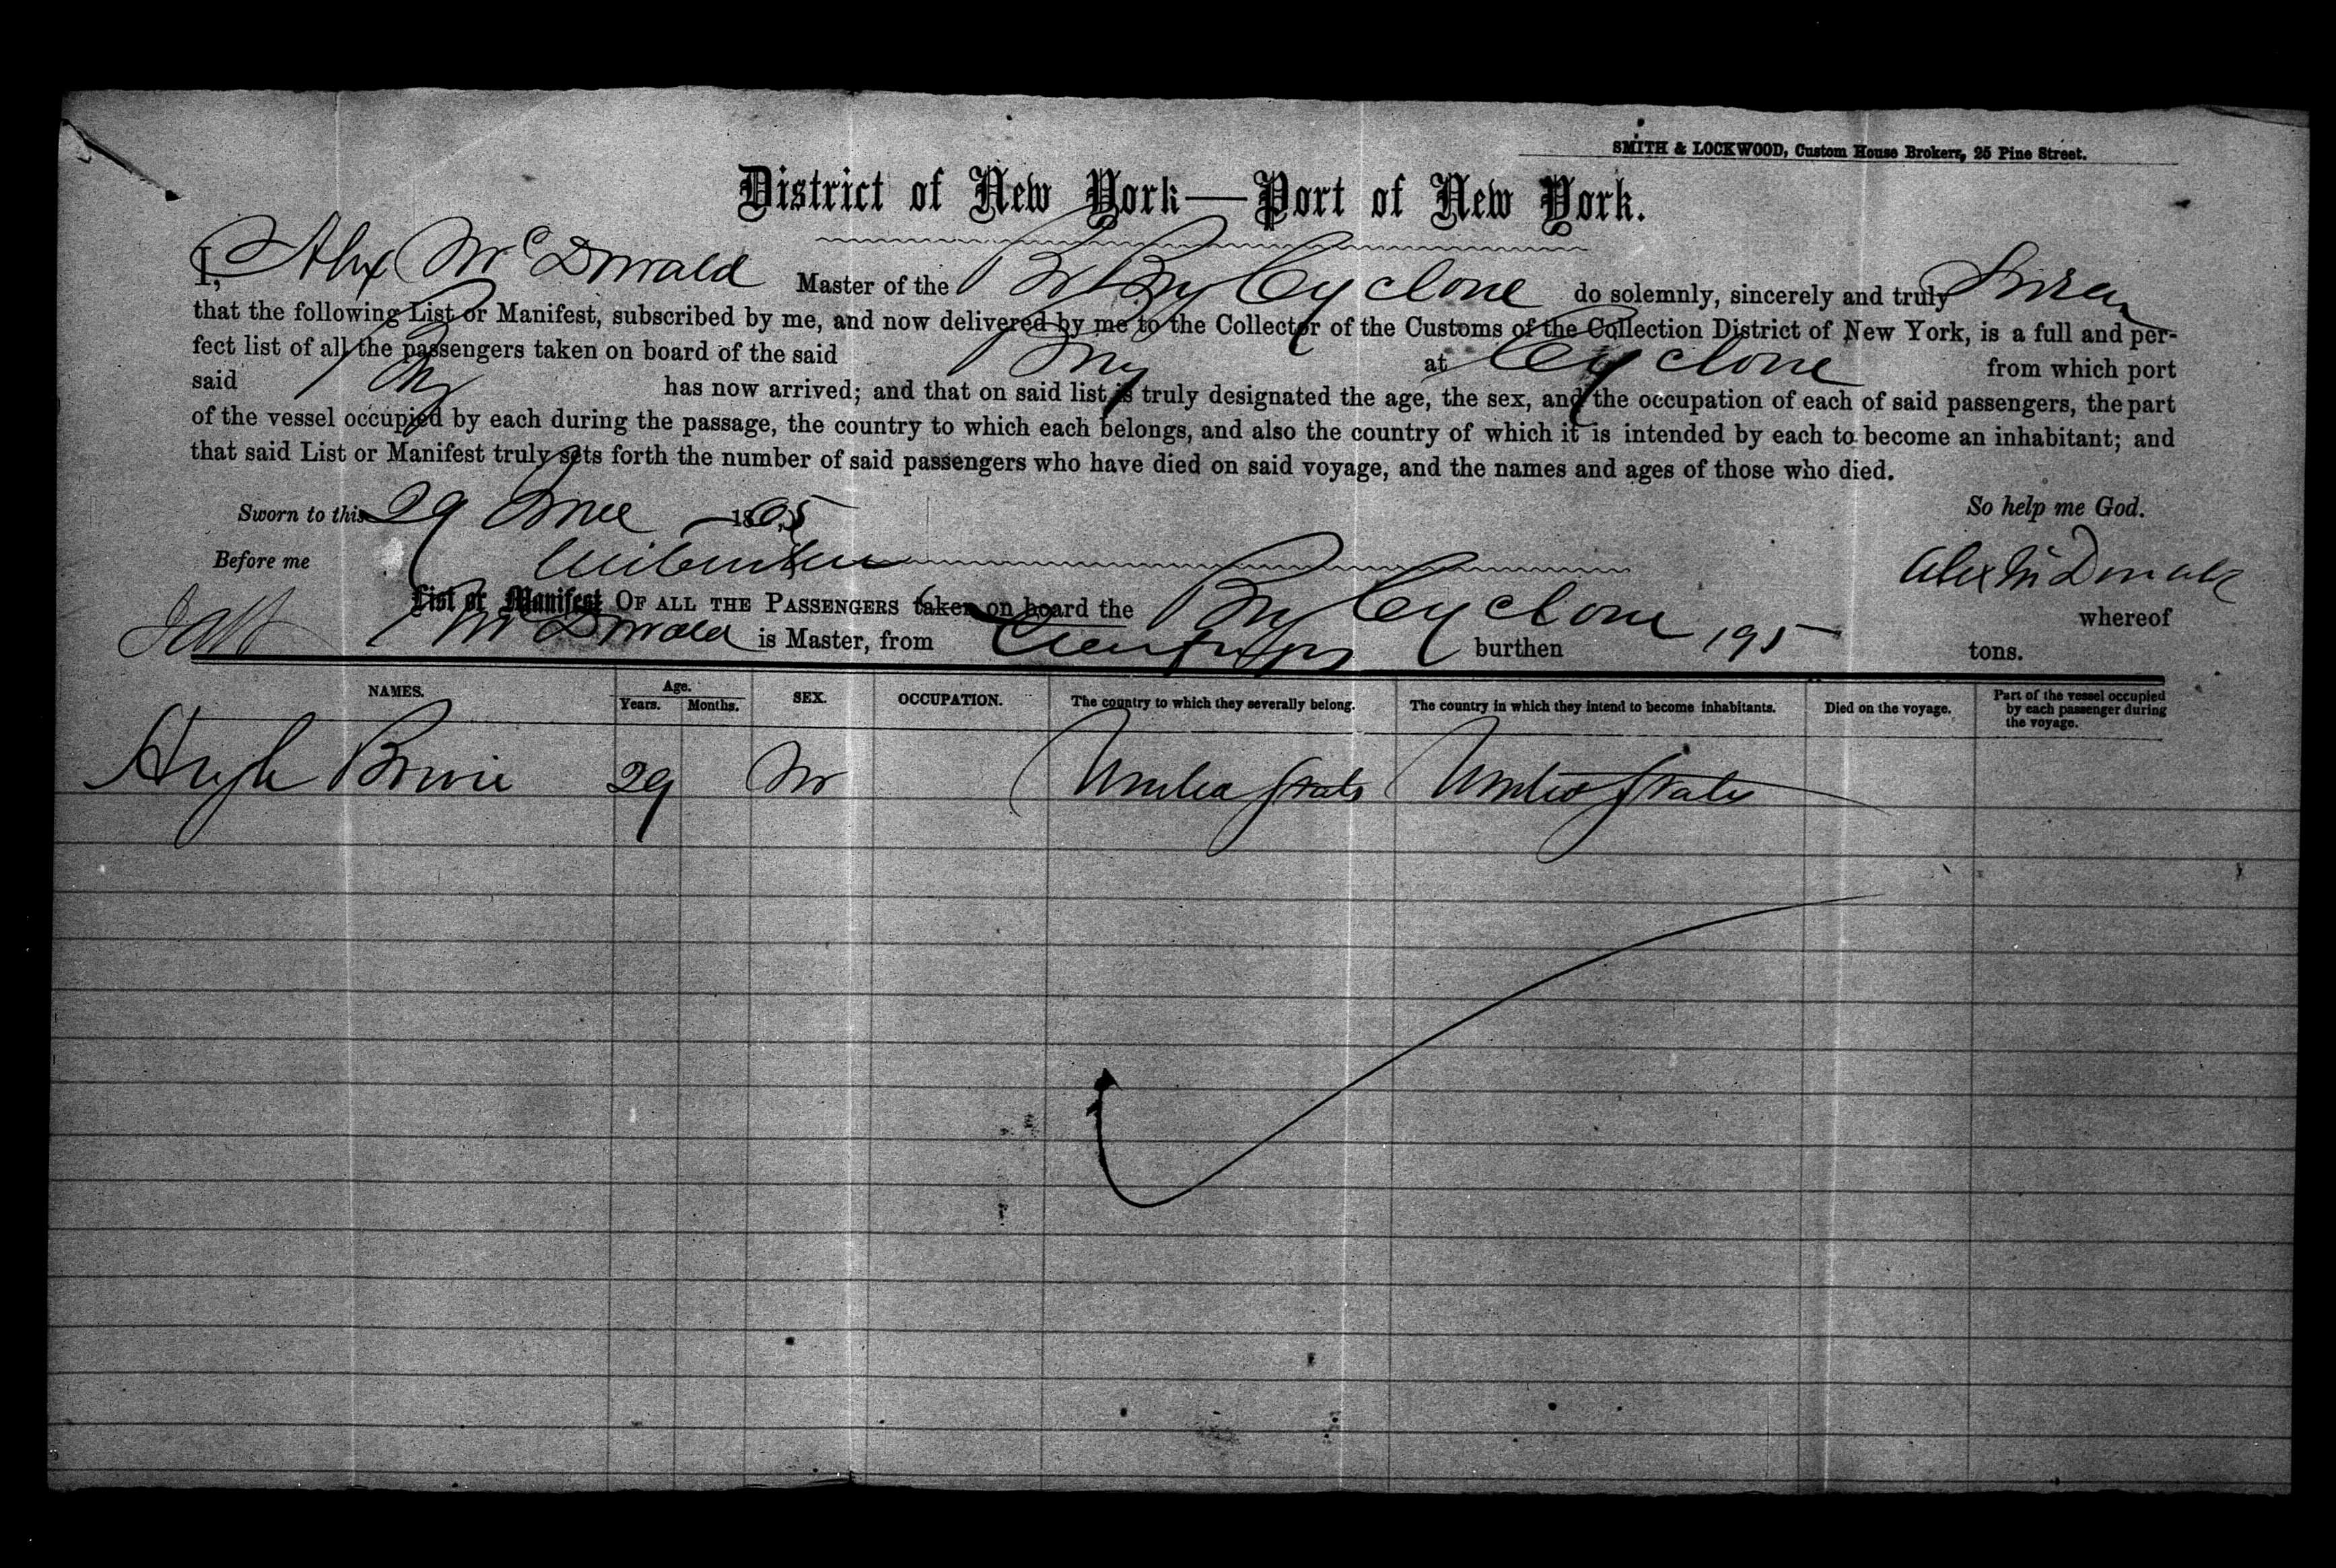 SMITH & LOCKWOOD, Custom House Brokers, 25 Pine Street.
District of New York—Port of New York.
I, Alex McDonald Master of the Br Brig Cyclone do solemnly, sincerely and truly Swear
that the following List or Manifest, subscribed by me, and now delivered by me to the Collector of the Customs of the Collection District of New York, is a full and per-
fect list of all the passengers taken on board of the said Brig at Cyclone from which port
said Brig has now arrived; and that on said list is truly designated the age, the sex, and the occupation of each of said passengers, the part
of the vessel occupied by each during the passage, the country to which each belongs, and also the country of which it is intended by each to become an inhabitant; and
that said List or Manifest truly sets forth the number of said passengers who have died on said voyage, and the names and ages of those who died.
Sworn to this 29 June 1865 So help me God.
Before me Alex McDonald
List or Manifest OF ALL THE PASSENGERS taken on board the Brig Cyclone whereof
McDonald is Master, from Cienfuegos burthen 195 tons.
NAMES. Age. Years. Months. SEX. OCCUPATION. The country to which they severally belong. The country in which they intend to become inhabitants. Died on the voyage. Part of the vessel occupied by each passenger during the voyage.
Hugh Bowie 29 M United States United States